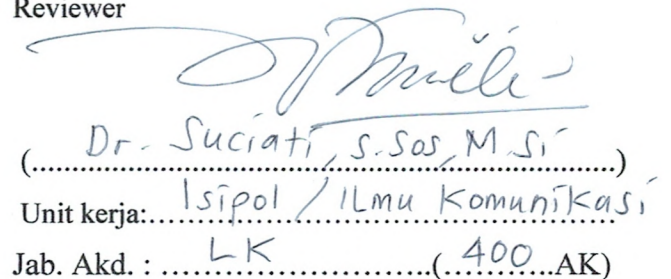 Reviewer
(Dr. Suciati, S.Sos, M.Si)
Unit kerja: Isipol / ILmu Komunikasi
Jab. Akd. : LK (400 AK)